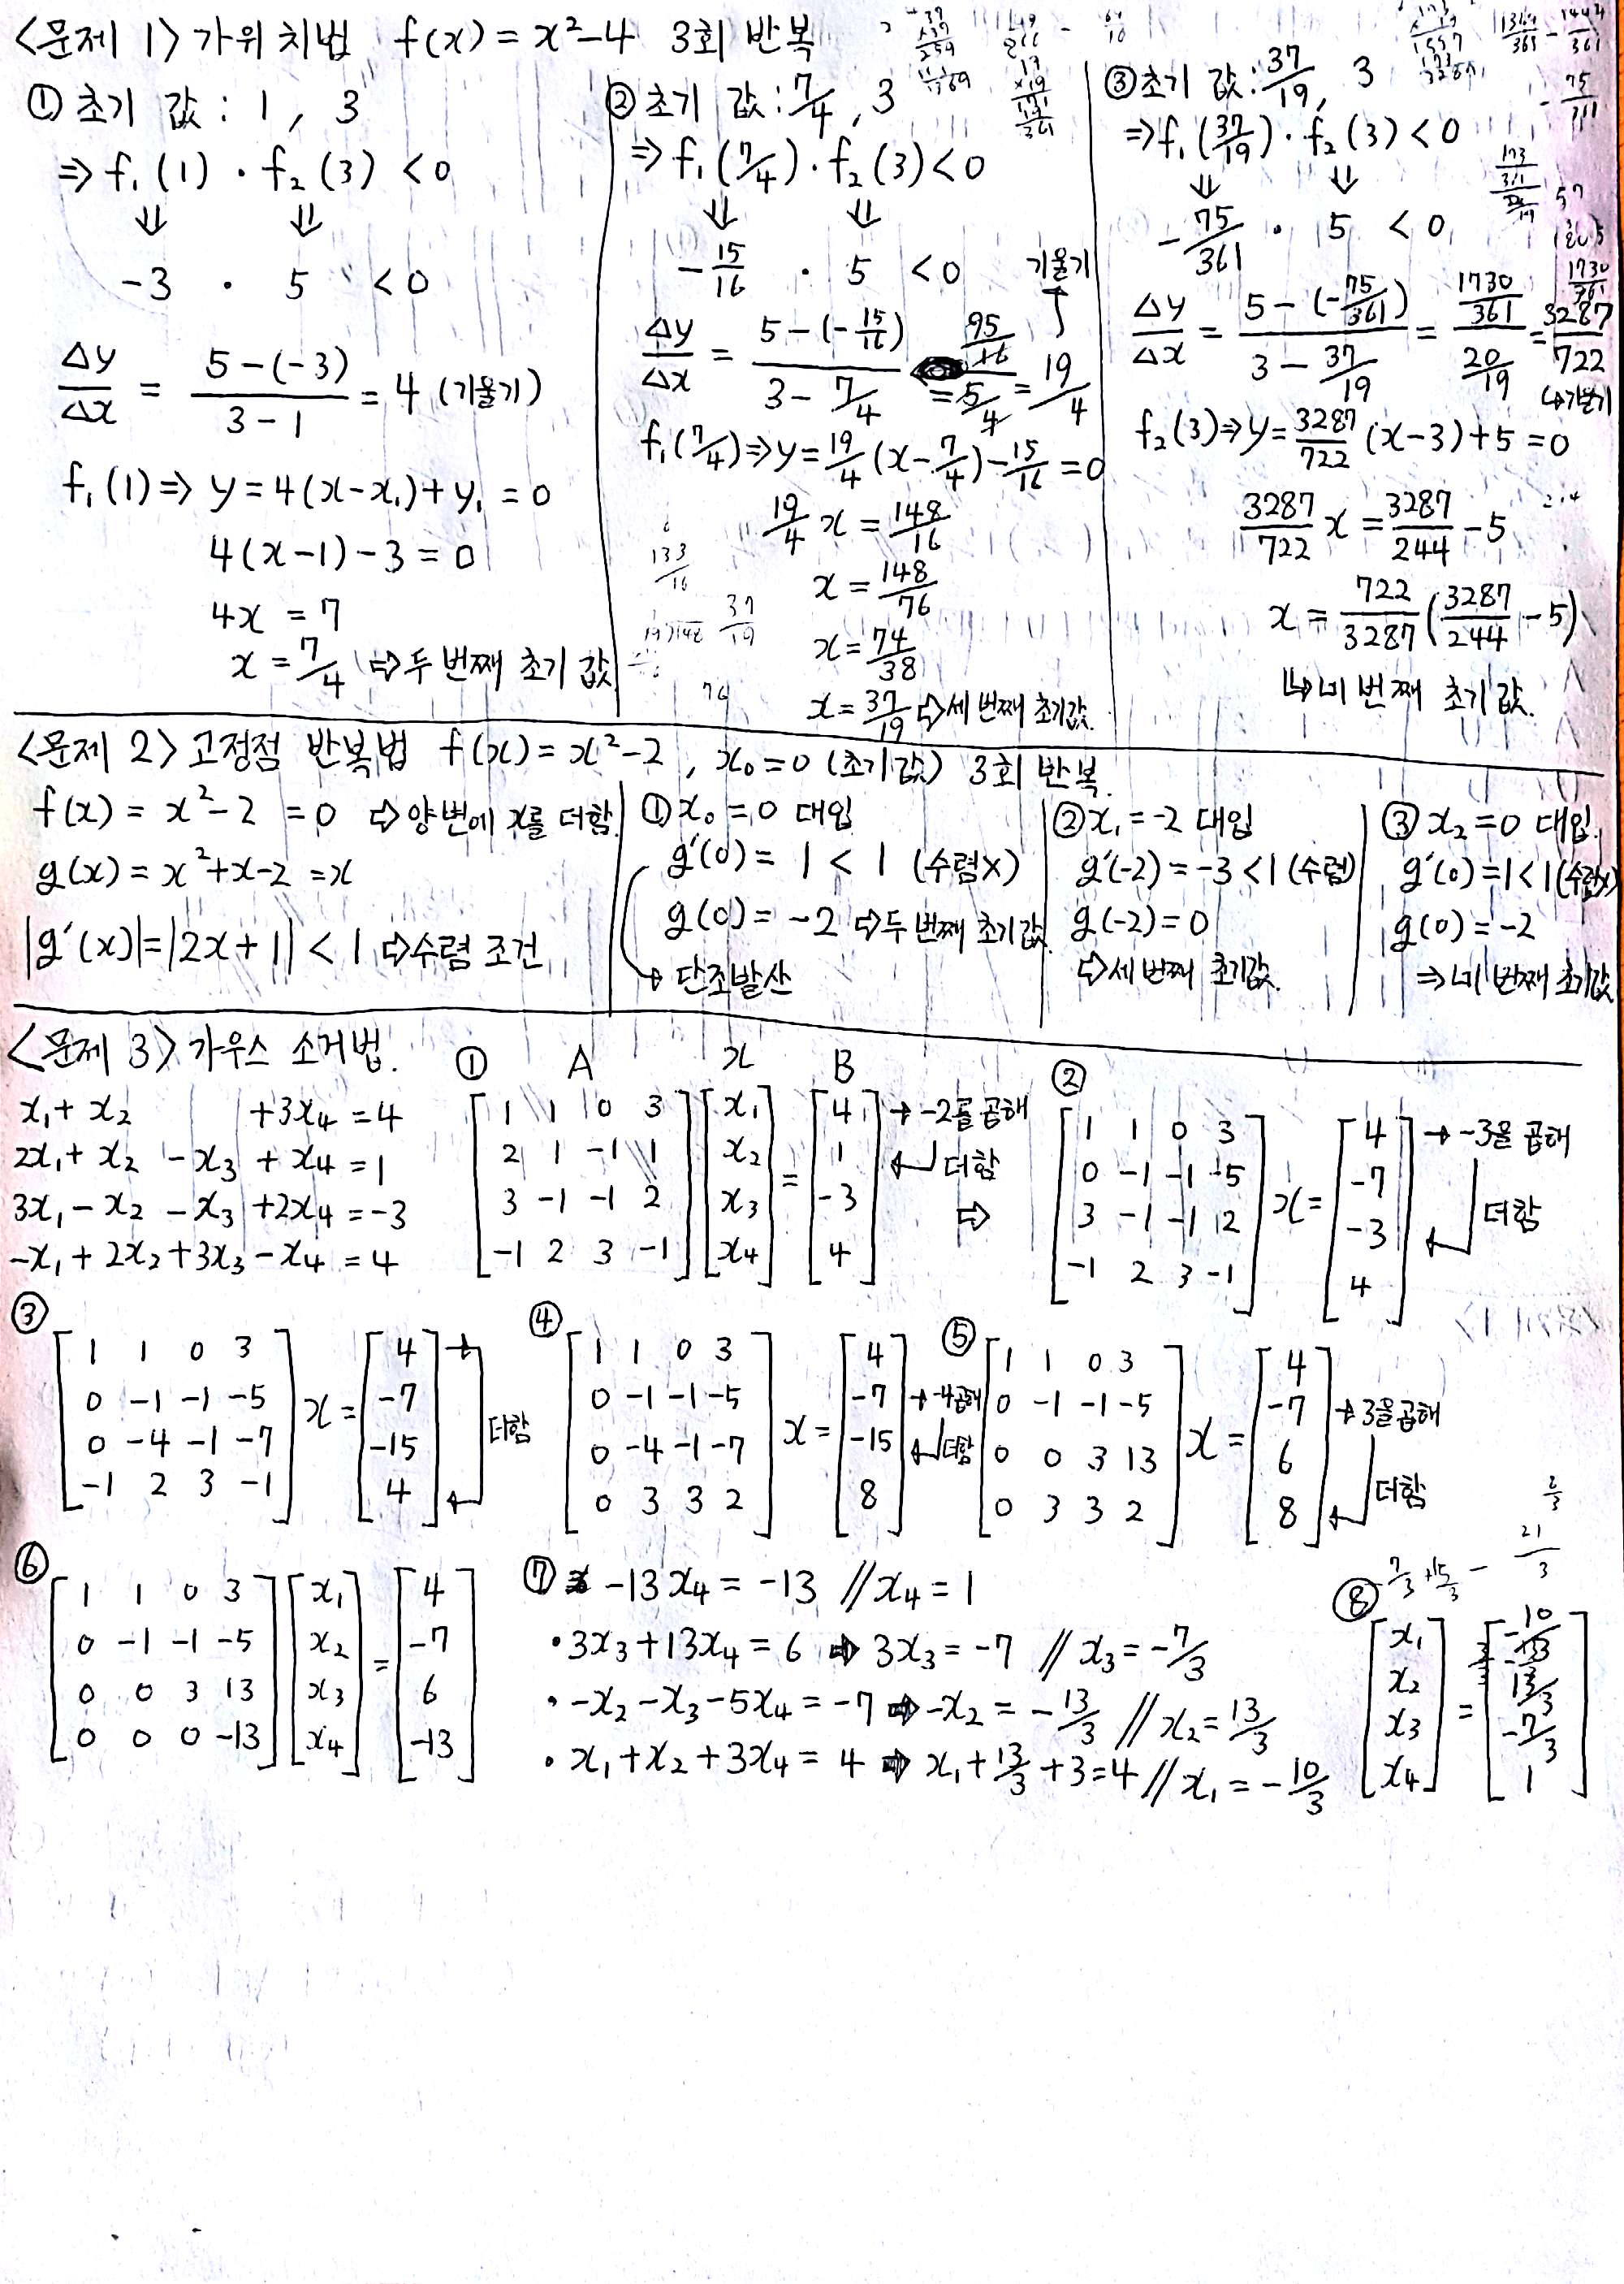 <문제 1> 가위치법 f(x) = x²-4 3회 반복
① 초기 값 : 1, 3
⇒ f₁(1) · f₂(3) < 0
⇓ ⇓
-3 · 5 < 0
Δy/Δx = (5-(-3))/(3-1) = 4 (기울기)
f₁(1) ⇒ y = 4(x-x₁)+y₁ = 0
4(x-1)-3 = 0
4x = 7
x = 7/4 ⇨ 두 번째 초기 값
② 초기 값 : 7/4, 3
⇒ f₁(7/4) · f₂(3) < 0
⇓ ⇓
-15/16 · 5 < 0 기울기
Δy/Δx = (5-(-15/16))/(3-7/4) = (95/16)/(5/4) = 19/4
f₁(7/4) ⇒ y = 19/4(x-7/4)-15/16 = 0
19/4 x = 148/16
x = 148/76
x = 74/38
x = 37/19 ⇨ 세 번째 초기값.
③ 초기 값 : 37/19, 3
⇒ f₁(37/19) · f₂(3) < 0
⇓ ⇓
-75/361 · 5 < 0
Δy/Δx = (5-(-75/361))/(3-37/19) = (1730/361)/(20/19) = 3287/722
↳ 기울기
f₂(3) ⇒ y = 3287/722(x-3)+5 = 0
3287/722 x = 3287/244 - 5
x = 722/3287(3287/244 - 5)
↳ 네 번째 초기값.
<문제 2> 고정점 반복법 f(x) = x²-2, x₀=0 (초기값) 3회 반복.
f(x) = x²-2 = 0 ⇨ 양변에 x를 더함.
g(x) = x²+x-2 = x
|g'(x)| = |2x+1| < 1 ⇨ 수렴 조건
① x₀ = 0 대입
g'(0) = 1 < 1 (수렴X)
g(0) = -2 ⇨ 두 번째 초기값.
→ 단조발산
② x₁ = -2 대입
g'(-2) = -3 < 1 (수렴)
g(-2) = 0
⇨ 세 번째 초기값.
③ x₂ = 0 대입.
g'(0) = 1 < 1 (수렴X)
g(0) = -2
⇒ 네 번째 초기값
<문제 3> 가우스 소거법.
x₁ + x₂ +3x₄ = 4
2x₁ + x₂ - x₃ + x₄ = 1
3x₁ - x₂ - x₃ + 2x₄ = -3
-x₁ + 2x₂ + 3x₃ - x₄ = 4
① A x B
[1 1 0 3] [x₁] [4] → -2를 곱해
[2 1 -1 1] [x₂] [1] ↵ 더함
[3 -1 -1 2] [x₃] = [-3] ⇨
[-1 2 3 -1] [x₄] [4]
②
[1 1 0 3] [4] → -3을 곱해
[0 -1 -1 -5] [-7]
[3 -1 -1 2] x = [-3] ↵ 더함
[-1 2 3 -1] [4]
③
[1 1 0 3] [4] →
[0 -1 -1 -5] x = [-7]
[0 -4 -1 -7] [-15] 더함
[-1 2 3 -1] [4] ↵
④
[1 1 0 3] [4]
[0 -1 -1 -5] [-7] → -4곱해
[0 -4 -1 -7] x = [-15] ↵ 더함
[0 3 3 2] [8]
⑤
[1 1 0 3] [4]
[0 -1 -1 -5] [-7] → 3을 곱해
[0 0 3 13] x = [6]
[0 3 3 2] [8] ↵ 더함
⑥
[1 1 0 3] [x₁] [4]
[0 -1 -1 -5] [x₂] = [-7]
[0 0 3 13] [x₃] [6]
[0 0 0 -13] [x₄] [-13]
⑦ -13x₄ = -13 // x₄ = 1
· 3x₃ + 13x₄ = 6 ⇨ 3x₃ = -7 // x₃ = -7/3
· -x₂ - x₃ - 5x₄ = -7 ⇨ -x₂ = -13/3 // x₂ = 13/3
· x₁ + x₂ + 3x₄ = 4 ⇨ x₁ + 13/3 + 3 = 4 // x₁ = -10/3
⑧
[x₁] [-10/3]
[x₂] = [13/3]
[x₃] [-7/3]
[x₄] [1]